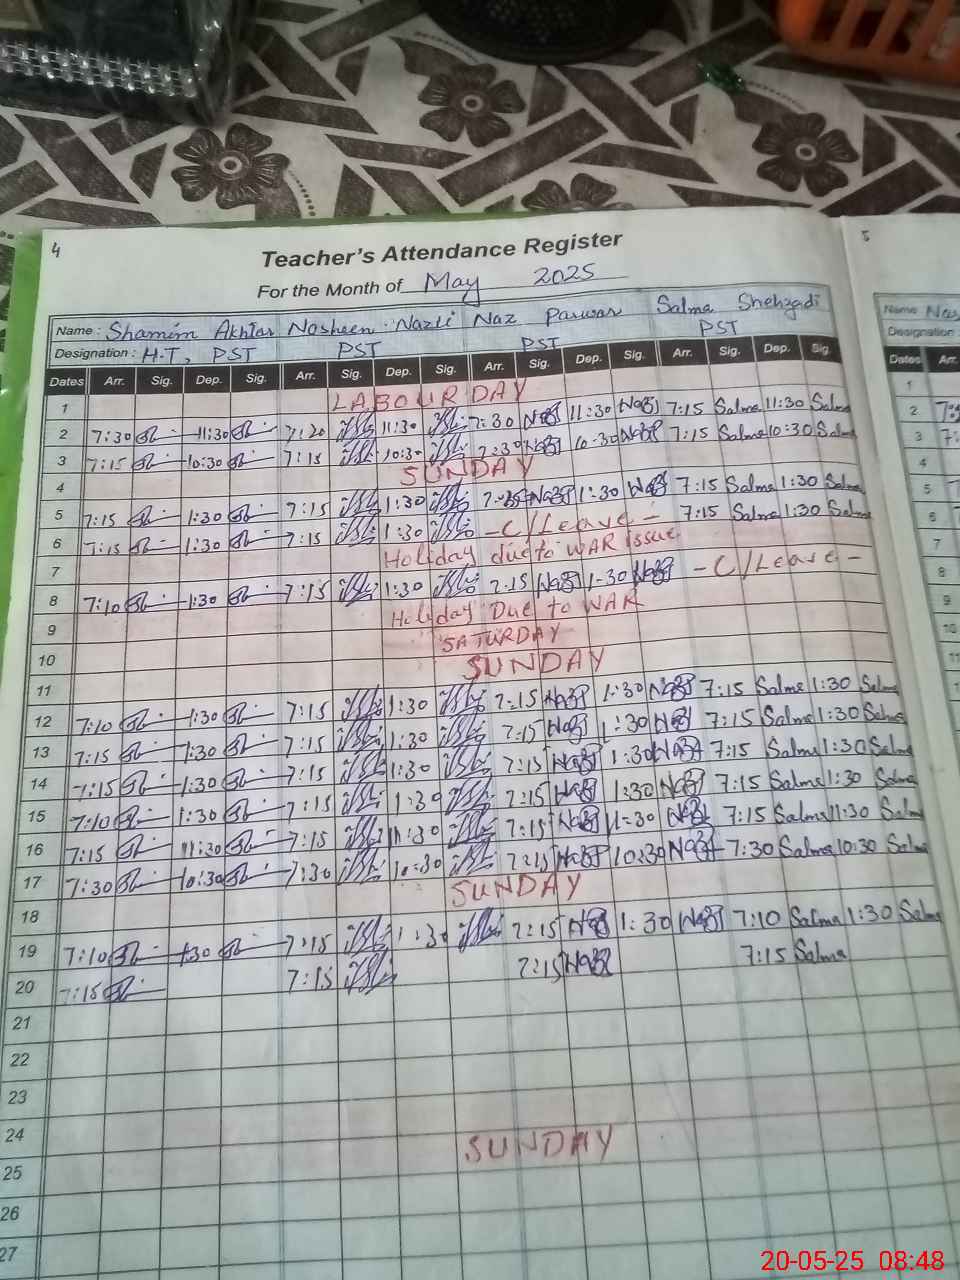 4
5
Teacher's Attendance Register
For the Month of May 2025
Name : Shamim Akhtar Nosheen Nazli Naz Parwar Salma Shehzadi
Designation : H.T, PST PST PST PST
Dates Arr. Sig. Dep. Sig. Arr. Sig. Dep. Sig. Arr. Sig. Dep. Sig. Arr. Sig. Dep. Sig.
1 LABOUR DAY
2 7:30 11:30 7:20 11:30 7:30 11:30 7:15 Salma 11:30 Salma
3 7:15 10:30 7:15 10:30 7:30 10:30 7:15 Salma 10:30 Salma
4 SUNDAY
5 7:15 1:30 7:15 1:30 1:30 7:15 Salma 1:30 Salma
6 7:15 1:30 7:15 1:30 - C/Leave - 7:15 Salma 1:30 Salma
7 Holiday due to WAR Issue
8 7:10 1:30 7:15 1:30 7:15 1-30 - C/Leave -
9 Holiday Due to WAR
10 SATURDAY
11 SUNDAY
12 7:10 1:30 7:15 1:30 7:15 1:30 7:15 Salma 1:30 Salma
13 7:15 1:30 7:15 1:30 7:15 1:30 7:15 Salma 1:30 Salma
14 7:15 1:30 7:15 1:30 7:15 1:30 7:15 Salma 1:30 Salma
15 7:10 1:30 7:15 1:30 7:15 1:30 7:15 Salma 1:30 Salma
16 7:15 11:30 7:15 11:30 7:15 11-30 7:15 Salma 11:30 Salma
17 7:30 10:30 7:30 10:30 7:15 10:30 7:30 Salma 10:30 Salma
18 SUNDAY
19 7:10 1:30 7:15 1:30 7:15 1:30 7:10 Salma 1:30 Salma
20 7:15 7:15 7:15 7:15 Salma
21
22
23
24
25 SUNDAY
26
27
Name
Designation
Dates Arr.
1
2
3
4
5
6
7
8
9
10
11
20-05-25 08:48